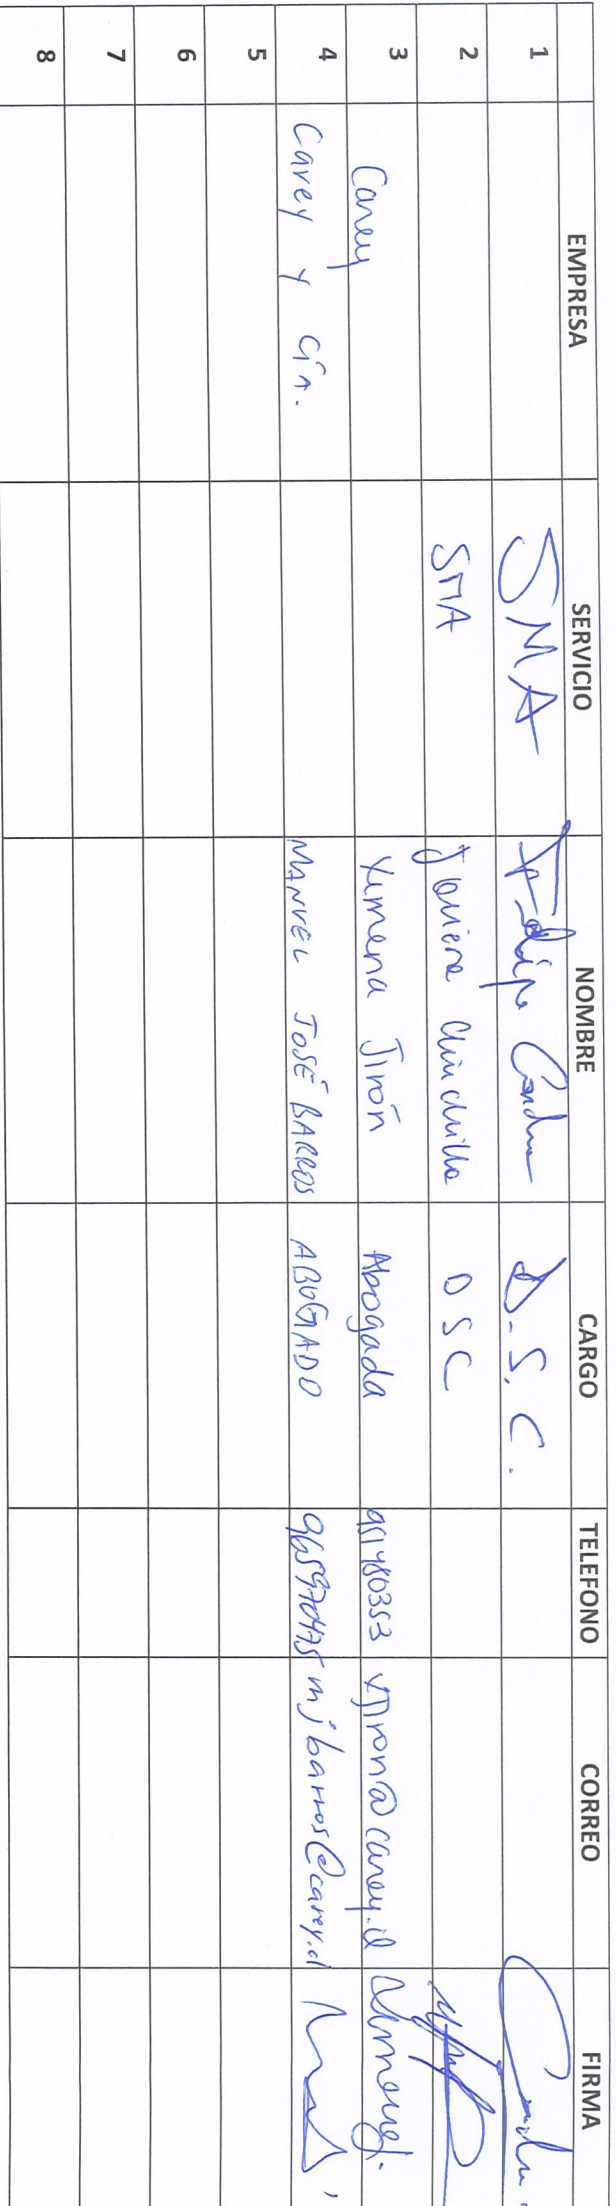 EMPRESA SERVICIO NOMBRE CARGO TELEFONO CORREO FIRMA
1 SMA Felipe D.S.C.
2 SMA Javiera Chinchilla DSC
3 Carey Ximena Jirón Abogada 951480353 xjiron@carey.cl
4 Carey y Cía. MANUEL JOSÉ BARROS ABOGADO mjbarros@carey.cl
5
6
7
8